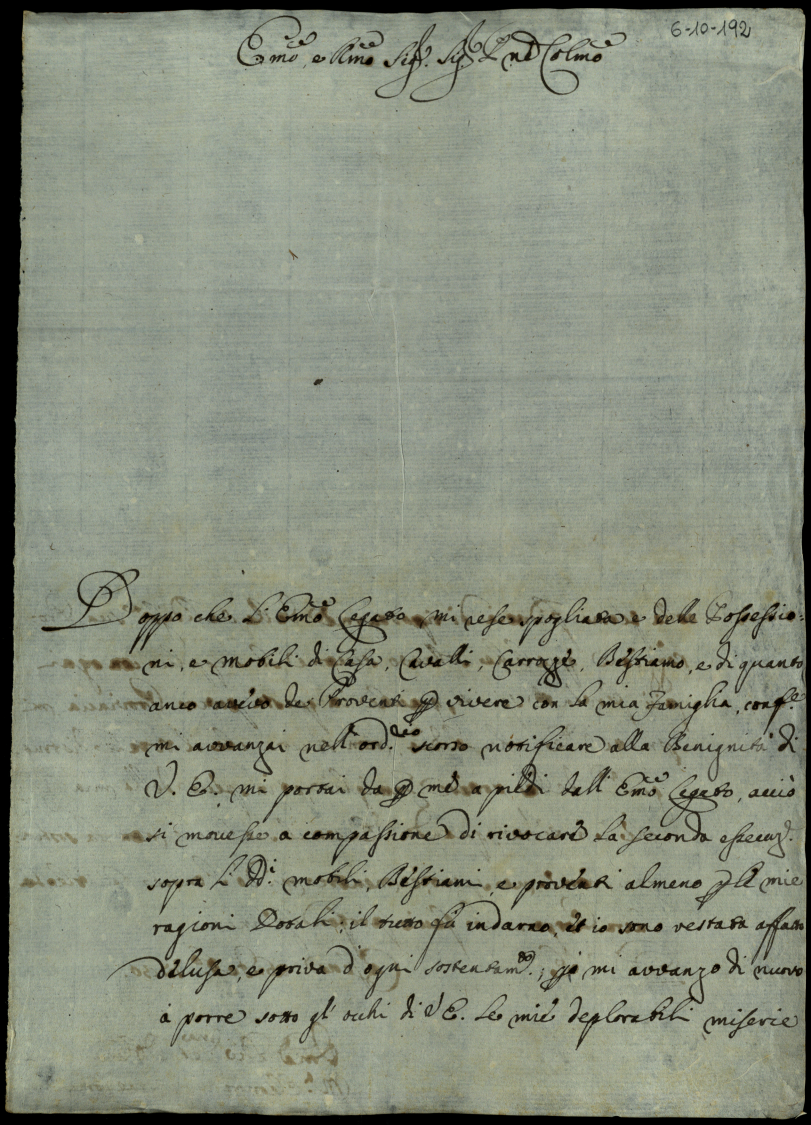 6-10-192
Emo, e Rmo Sig.r Sig.r Pne Colmo
Doppo che L'Emo Legato mi rese spogliata e delle Possessio:
ni, e mobili di Casa, Cavalli, Carrozze, Bestiamo, e di quanto
anco avevo de Proventi p vivere con la mia famiglia, conf.e
mi avvanzai nell'ord.rio scorso notificare alla Benignità di
V. E. mi portai da p me a piedi dall Emo Legato, acciò
si movesse a compassione di rivocare la seconda essecuz.
sopra L' dd.i mobili, Bestiami, e proventi almeno p le mie
ragioni Dotali; il tutto fù indarno, et io sono restata affatto
delusa, e priva d'ogni sostentam.to; p mi avvanzo di nuovo
à porre sotto gl'occhi di V E. Le mie deplorabili miserie